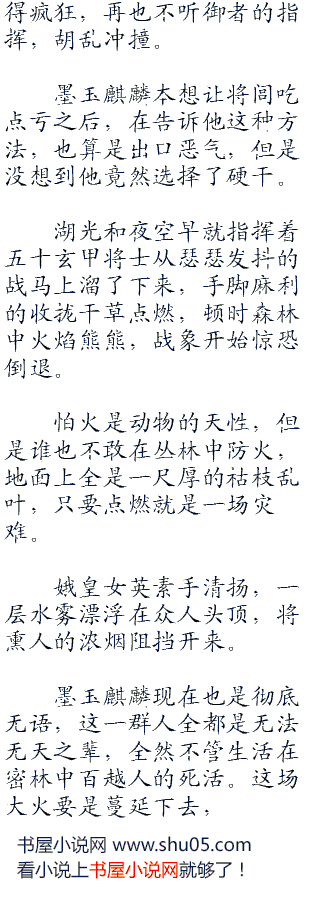 得疯狂，再也不听御者的指
挥，胡乱冲撞。
墨玉麒麟本想让将闾吃
点亏之后，在告诉他这种方
法，也算是出口恶气，但是
没想到他竟然选择了硬干。
湖光和夜空早就指挥着
五十玄甲将士从瑟瑟发抖的
战马上溜了下来，手脚麻利
的收拢干草点燃，顿时森林
中火焰熊熊，战象开始惊恐
倒退。
怕火是动物的天性，但
是谁也不敢在丛林中防火，
地面上全是一尺厚的枯枝乱
叶，只要点燃就是一场灾
难。
娥皇女英素手清扬，一
层水雾漂浮在众人头顶，将
熏人的浓烟阻挡开来。
墨玉麒麟现在也是彻底
无语，这一群人全都是无法
无天之辈，全然不管生活在
密林中百越人的死活。这场
大火要是蔓延下去，
书屋小说网 www.shu05.com
看小说上书屋小说网就够了！